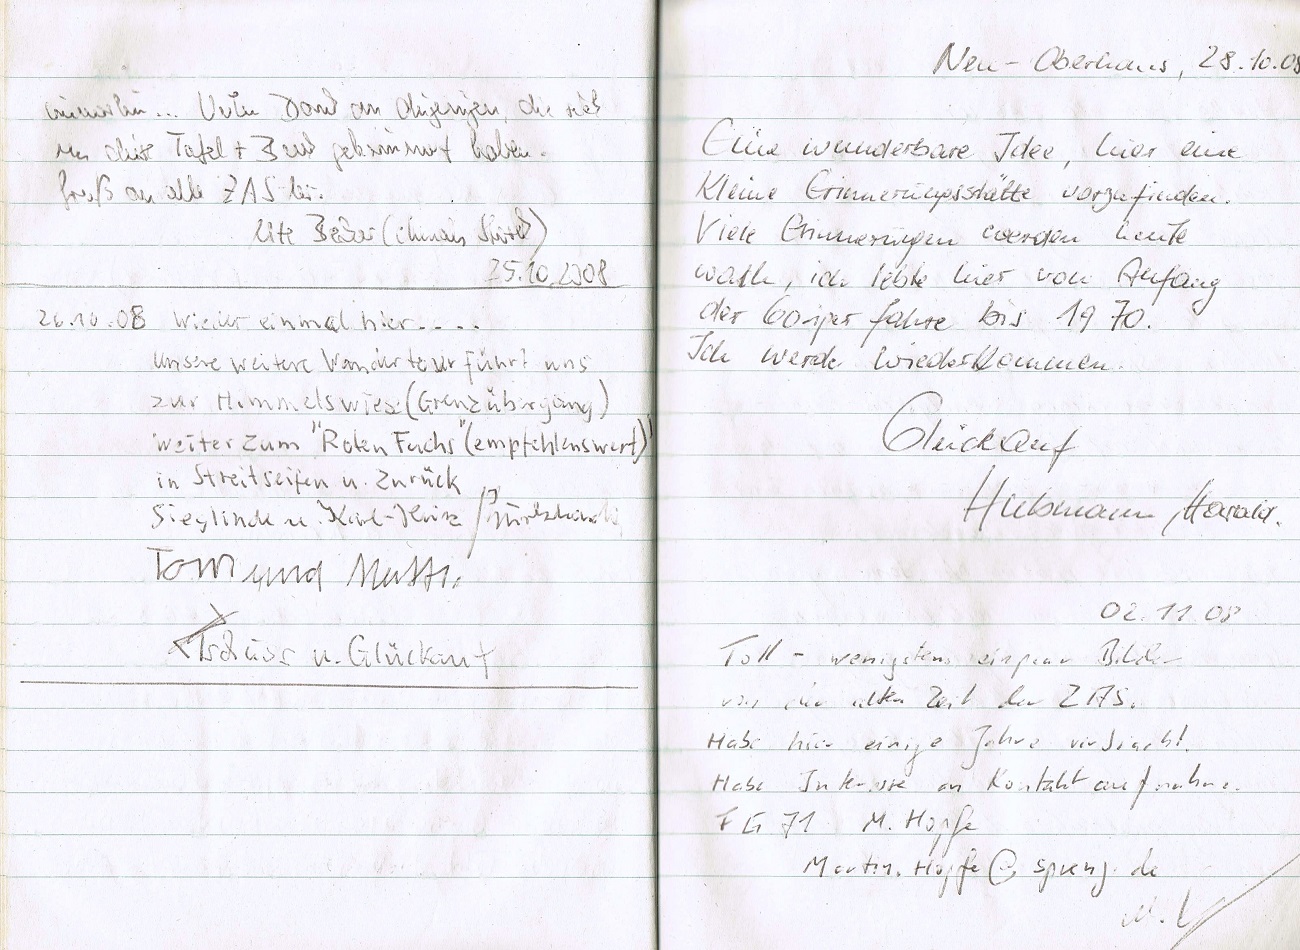 immerhin... Vielen Dank an diejenigen, die sich
um diese Tafel + Bank gekümmert haben.
Gruß an alle ZAS ler.
(ehmals
25.10.2008
26.10.08 Wieder einmal hier....
unsere weitere Wandertour führt uns
zur Himmelswiese (Grenzübergang)
weiter zum "Roten Fuchs" (empfehlenswert)
in Streitseifen u. zurück
Sieglinde u. Karl-Heinz
Tom und
Tschüss u. Glückauf
Neu-Oberhaus, 28.10.08
Eine wunderbare Idee, hier eine
kleine Erinnerungsstätte vorzufinden.
Viele Erinnerungen werden heute
wach, ich lebte hier von Anfang
der 60-iger Jahre bis 1970.
Ich werde wiederkommen.
Glückauf
Harald.
02.11.08
Toll - wenigstens ein paar Bilder
von der alten Zeit der ZAS.
Habe hier einige Jahre verbracht.
Habe Interesse an Kontaktaufnahme.
FG 71 M. Hopfe
Martin.Hopfe@spreng.de